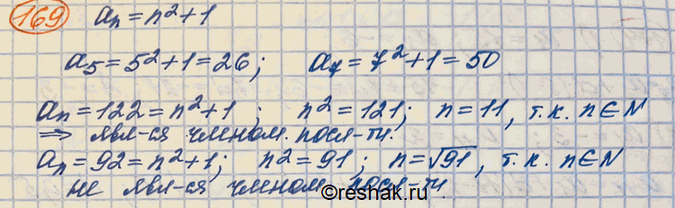 169 aₙ = n² + 1
a₅ = 5² + 1 = 26; a₇ = 7² + 1 = 50
aₙ = 122 = n² + 1; n² = 121; n = 11, т.к. n ∈ N
⇒ явл-ся членом посл-ти.
aₙ = 92 = n² + 1; n² = 91; n = √91, т.к. n ∈ N
не явл-ся членом посл-ти.
©reshak.ru